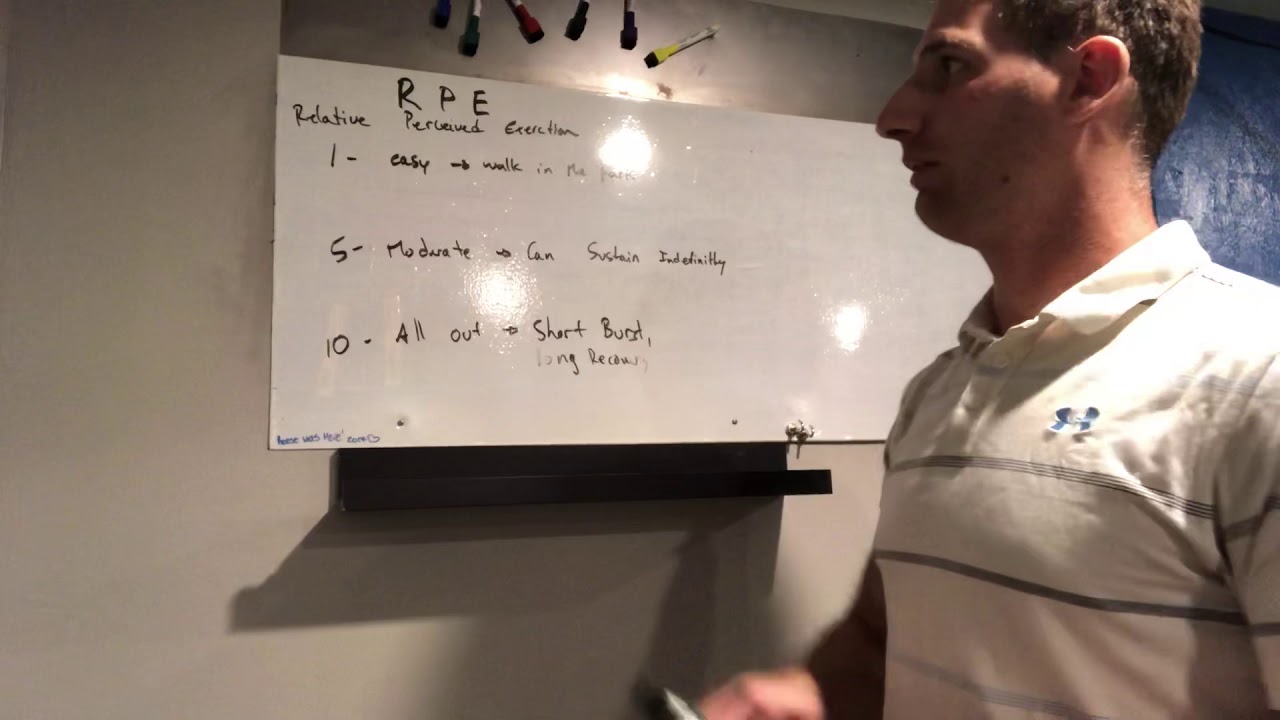 R P E
Relative Perceived Exerction
1 - easy → walk in the park
5 - Moderate → Can Sustain Indefinitly
10 - All out → Short Burst,
long Recovery
Reese was Here!